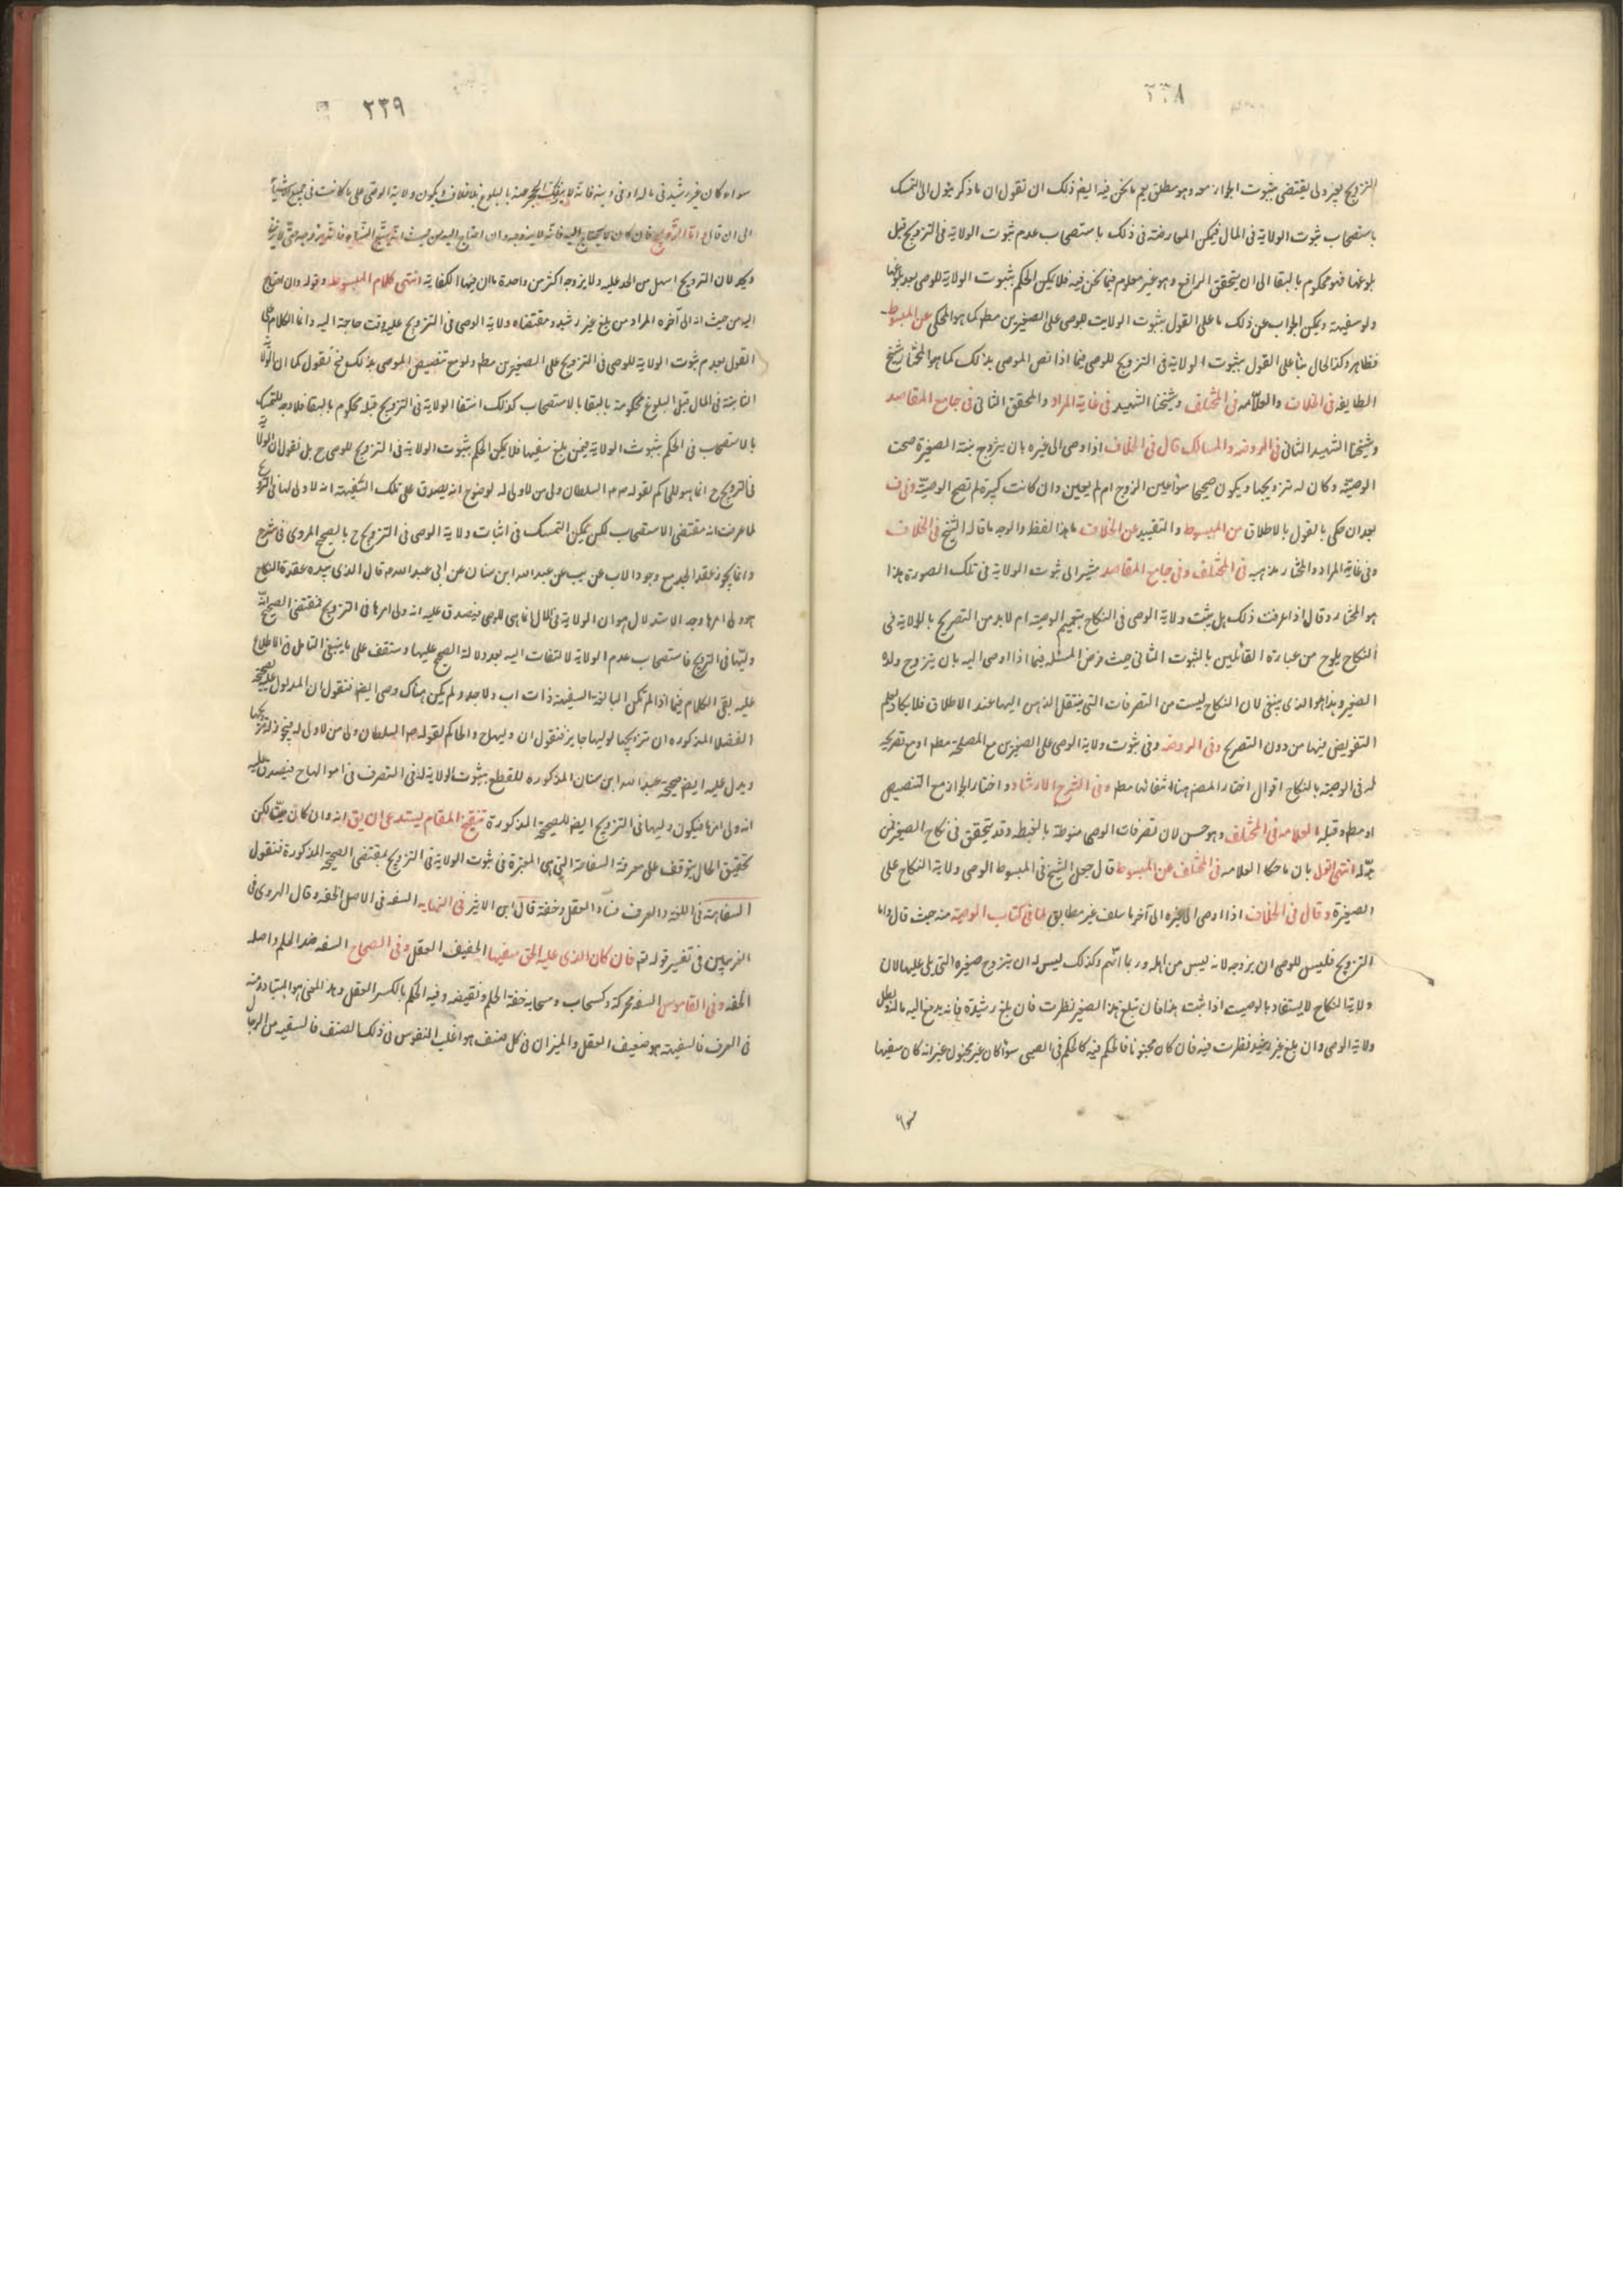 ٢٣٨
التزويج بغير ولي يقتضي ثبوت الجواز معه وهو مطلق يعم ما نحن فيه ايض ذلك ان تقول ان ما ذكر يئول الى التمسك
باستصحاب ثبوت الولاية في المال فيمكن المعارضة في ذلك باستصحاب عدم ثبوت الولاية في التزويج قبل
بلوغها فهو محكوم بالبقا الى ان يتحقق الرافع وهو غير معلوم فيما نحن فيه فلا يمكن الحكم بثبوت الولاية للوصي بعد بلوغها
ولو سفيهة ويمكن الجواب عن ذلك ما على القول بثبوت الولايت للوصي على الصغيرين مطم كما هو المحكي عن المبسوط
فظاهر وكذا الحال بنأ على القول بثبوت الولاية في التزويج للوصي فيما اذا نص الموصي بذلك كما هو المختار لشيخ
الطايفه في الخلاف والعلامه في المختلف وشيخنا الشهيد في غاية المراد والمحقق الثاني في جامع المقاصد
وشيخنا الشهيد الثاني في الروضه والمسالك قال في الخلاف اذا اوصى الى غيره بان يزوج بنته الصغيرة صحت
الوصيته وكان له تزويجها ويكون صحيحا سوأ عين الزوج ام لم يعين وان كانت كبيرة لم تصح الوصية وفي ف
بعد ان حكى بالقول بالاطلاق من المبسوط والتقييد عن الخلاف ما هذا لفظ والوجه ما قاله الشيخ في الخلاف
وفي غاية المراد والمختار مذهبه في المختلف وفي جامع المقاصد مشيرا الى ثبوت الولاية في تلك الصورة هذا
هو المختار وقال اذا عرفت ذلك هل يثبت ولاية الوصي في النكاح بتعميم الوصيته ام لا بد من التصريح بالولاية في
النكاح يلوح من عبارة القائلين بالثبوت الثاني حيث فرض المسئلة فيما اذا اوصى اليه بان يتزوج ولده
الصغير وهذا هو الذي ينبغي لان النكاح ليست من التصرفات التي ينتقل الذهن اليها عند الاطلاق فلا يكاد يعلم
التفويض فيها من دون التصريح وفي الروضه وفي ثبوت ولاية الوصي على الصغيرين مع المصلحة مطم او مع تصريحه
له في الوصيته بالنكاح اقوال اختار المصنم هنا انتفائها مطم وفي الشرح الارشاد واختار الجواز مع التنصيص
او مطم وقبله العلامه في المختلف وهو حسن لان تصرفات الوصي منوطة بالغبطه وقد يتحقق في نكاح الصغير من
جدّ له انتهى اقول بان ما حكا العلامه في المختلف عن المبسوط قال جعل الشيخ في المبسوط الوصي ولاية النكاح على
الصغيرة وقال في الخلاف اذا اوصى الى غيره الى آخر ما سلف غير مطابق لما في كتاب الوصية منه حيث قال واما
التزويج فليس للوصي ان يزوجه لانه ليس من اهله وربما اتّهم وكذلك ليس له ان يتزوج صغيره التي يلي عليها لان
ولاية النكاح لا يستفاد بالوصيت اذا ثبت هذا فان بلغ هذا الصغير نظرت فان بلغ رشيدة فانه يدفع اليه ماله ويبطل
ولاية الوصي وان بلغ غير رشيد نظرت فيه فان كان مجنونا فالحكم فيه كالحكم في الصبي سوأ كان غير مجنون غير انه كان سفيها
٢٣٩
سواء كان غير رشيد في ماله او في دينه فانه لا ينفك الحجر عنه بالبلوغ بلا خلاف ويكون ولاية الوصي على ما كانت في جميع الاشيأ
الى ان قال واما التزويج فان كان لا يحتاج اليه فانه لا يزوجه وان احتاج اليه من حيث انه يتبع النسأ فانه يزوجه حتى لا يزني
ويحد لان التزويج اسهل من الحد عليه ولا يزوجه اكثر من واحدة لان فيها الكفاية انتهى كلام المبسوط وقوله وان احتاج
اليه من حيث انه الى آخره المراد من بلغ غير رشيد ومقتضاه ولاية الوصي في التزويج عليه وقت حاجة اليه وانما الكلام على
القول بعدم ثبوت الولاية للوصي في التزويج على الصغيرين مطم ولو مع تنصيص الموصي بذلك فح نقول كما ان الولاية
الثابتة في المال قبل البلوغ محكومة بالبقا بالاستصحاب كذلك انتفأ الولاية في التزويج قبله محكوم بالبقا فلا وجه للتمسك
بالاستصحاب في الحكم بثبوت الولاية فيمن بلغ سفيها فلا يمكن الحكم بثبوت الولاية في التزويج للوصي ح بل نقول ان الولاية
في التزويج ح انما هو للحاكم لقوله صم السلطان ولي من لا ولي له لوضوح انه يصدق على تلك السّفيهة انه لا ولي لها في التزويج
لما عرفت انه مقتضى الاستصحاب لكن يمكن التمسك في اثبات ولاية الوصي في التزويج ح بالصحيح المروي في شرح
وانما يجوز عقد الجد مع وجود الاب عن يب عن عبد الله ابن سنان عن ابي عبد الله عم قال الذي بيده عقدة النكاح
هو ولي امرها وجه الاستدلال هو ان الولاية في المال انما هي للوصي فيصدق عليه انه ولي امرها في التزويج فمقتضى الصحيح انه
وليّها في التزويج فاستصحاب عدم الولاية لا التفات اليه بعد دلالة الصحيح عليها وستقف على ما ينبغي التامل في الاطلاع
عليه بقي الكلام فيما اذا لم تكن البالغة السفيهة ذات اب ولا جد ولم يكن هناك وصي ايض فنقول ان المدلول عليه بصحيحة
الفضلا المذكوره ان تزويجها لوليها جايز فنقول ان وليها ح والحاكم لقوله صم السلطان ولي من لا ولي له فيجوز له تزويجها
ويدل عليه ايض صحيحة عبد الله ابن سنان المذكوره للقطع بثبوت الولاية له في التصرف في اموالها ح فيصدق عليه
انه ولي امرها فيكون وليها في التزويج ايض للصحيحة المذكورة تنقيح المقام يستدعي ان يق انه وان كان لكن
تحقيق الحال يتوقف على معرفة السفاهة التي هي المعتبرة في ثبوت الولاية في التزويج بمقتضى الصحيحة المذكورة فنقول
السفاهة في اللغة والعرف فساد العقل وخفة قال ابن الاثير في النهايه السفه في الاصل الخفه وقال الهروي في
الغريبين في تفسير قوله تم فان كان الذي عليه الحق سفيها الخفيف العقل وفي الصحاح السفه ضد الحلم واصله
الخفه وفي القاموس السفه محركة وكسحاب وسحابه خفة الحلم ونقيضه وفيه الحلم بالكسر العقل وهذ المعنى هو المتبادر منه
في العرف فالسفيهة هو ضعيف العقل والميزان في كل صنف هو اغلب النفوس في ذلك الصنف فالسفيه من الرجال